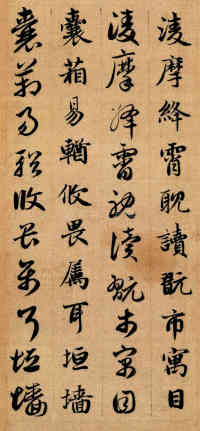 淩摩絳霄耽讀翫市寓目
淩摩絳霄耽讀翫市寓目
囊箱易輶攸畏屬耳垣墻
囊箱易輶攸畏屬耳垣墻